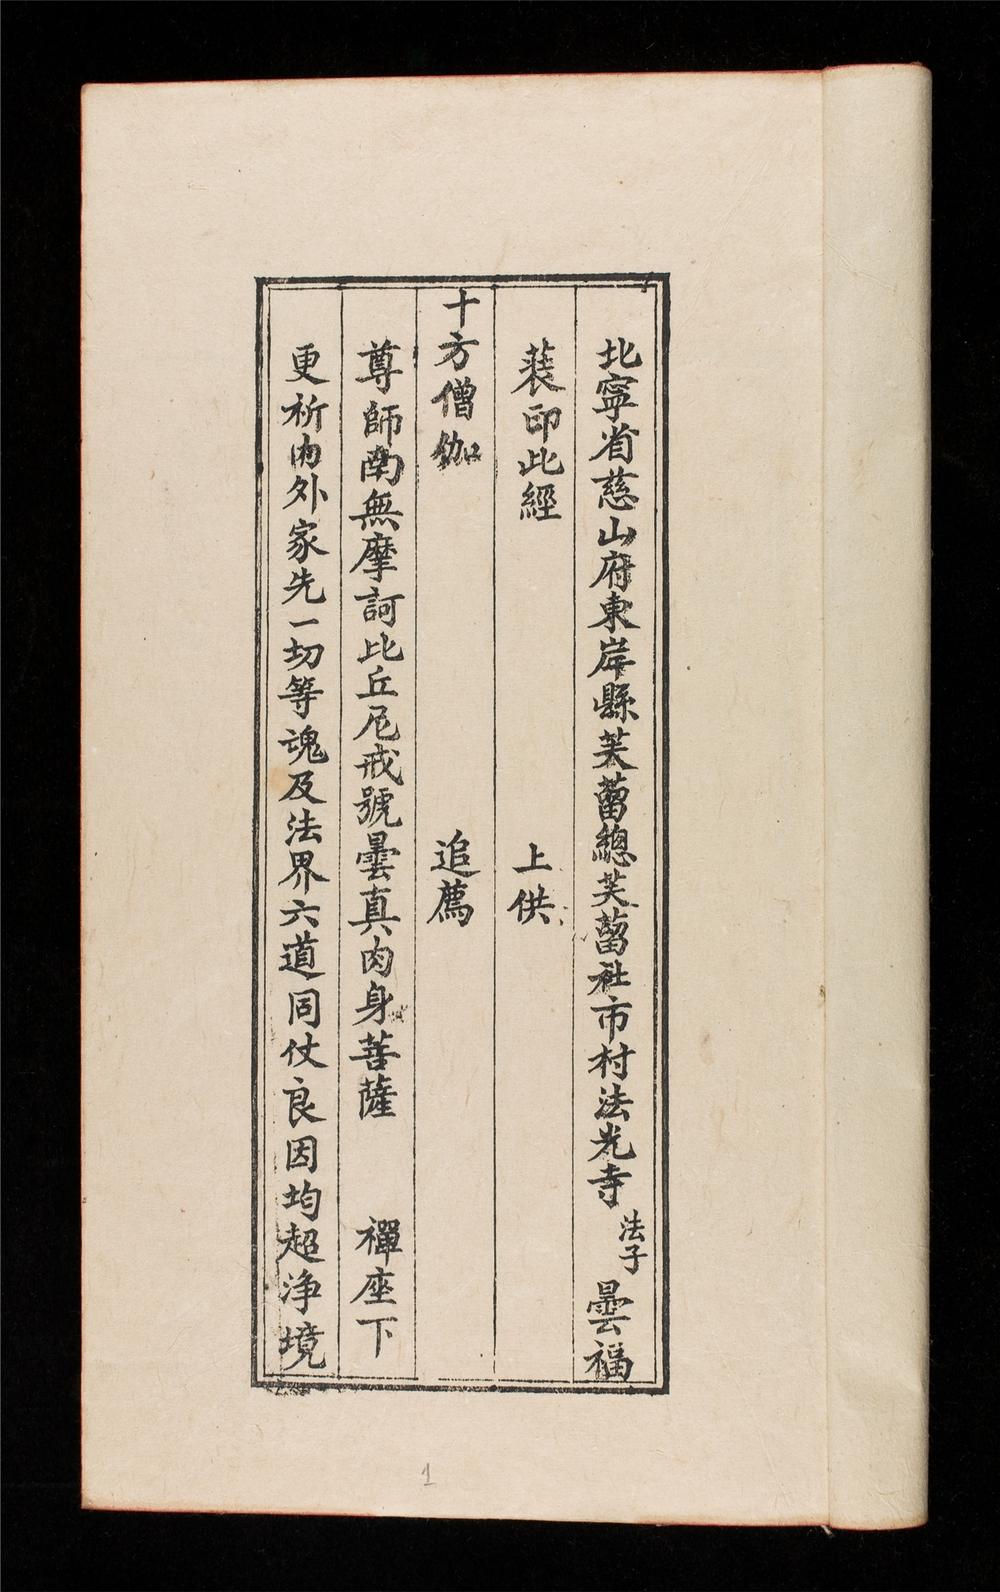 北寧省慈山府東岸縣芙蕾總芙蕾社市村法光寺法子曇福
裝印此經 上供
十方僧伽 追薦
尊師南無摩訶比丘尼戒號曇真肉身菩薩 禪座下
更祈内外家先一切等魂及法界六道同仗良因均超淨境
1